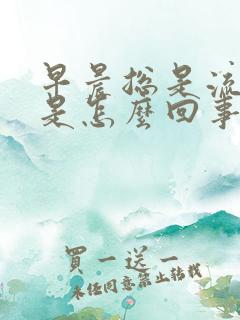 早晨总是流
是怎么回事
買一送一
未经同意禁止转载